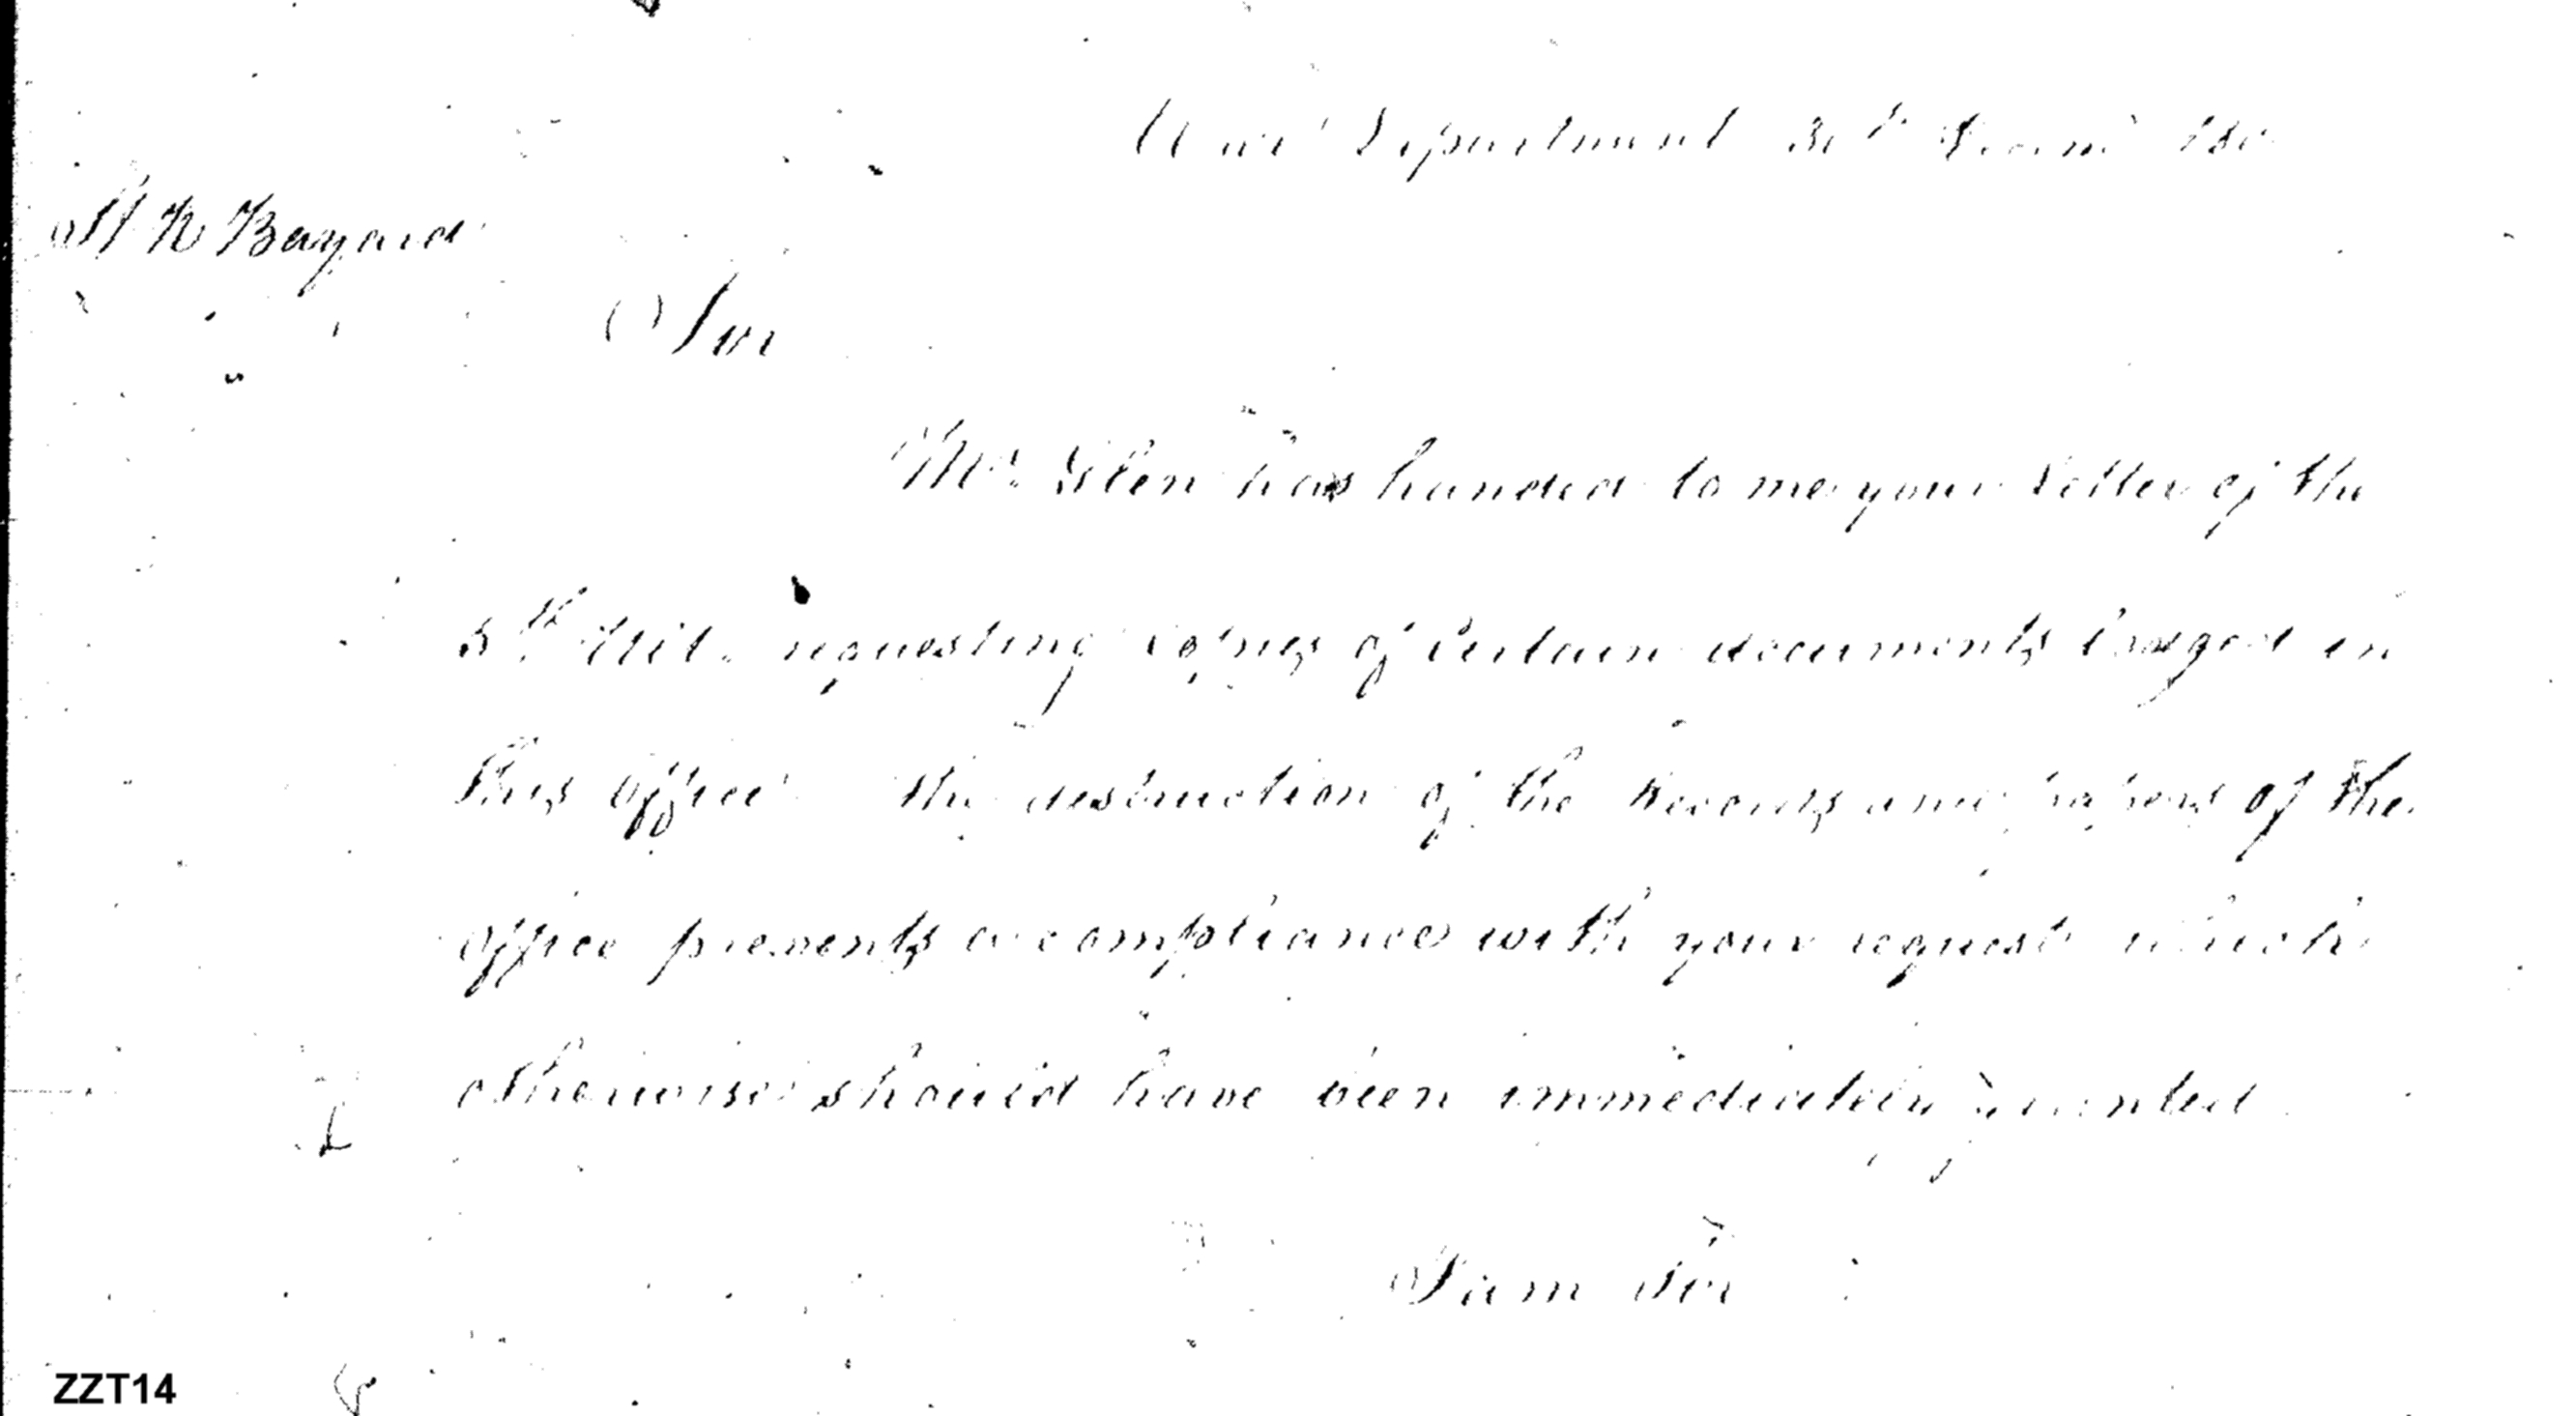 War Department
W Bayard
Sir
Mr. Glen has handed to me your Letter of the
5th Ult. requesting copies of Certain documents lodged in
this Office. the destruction of the Records and papers of the
office prevents a compliance with your request which
otherwise should have been immediately granted
I am Sir
ZZT14